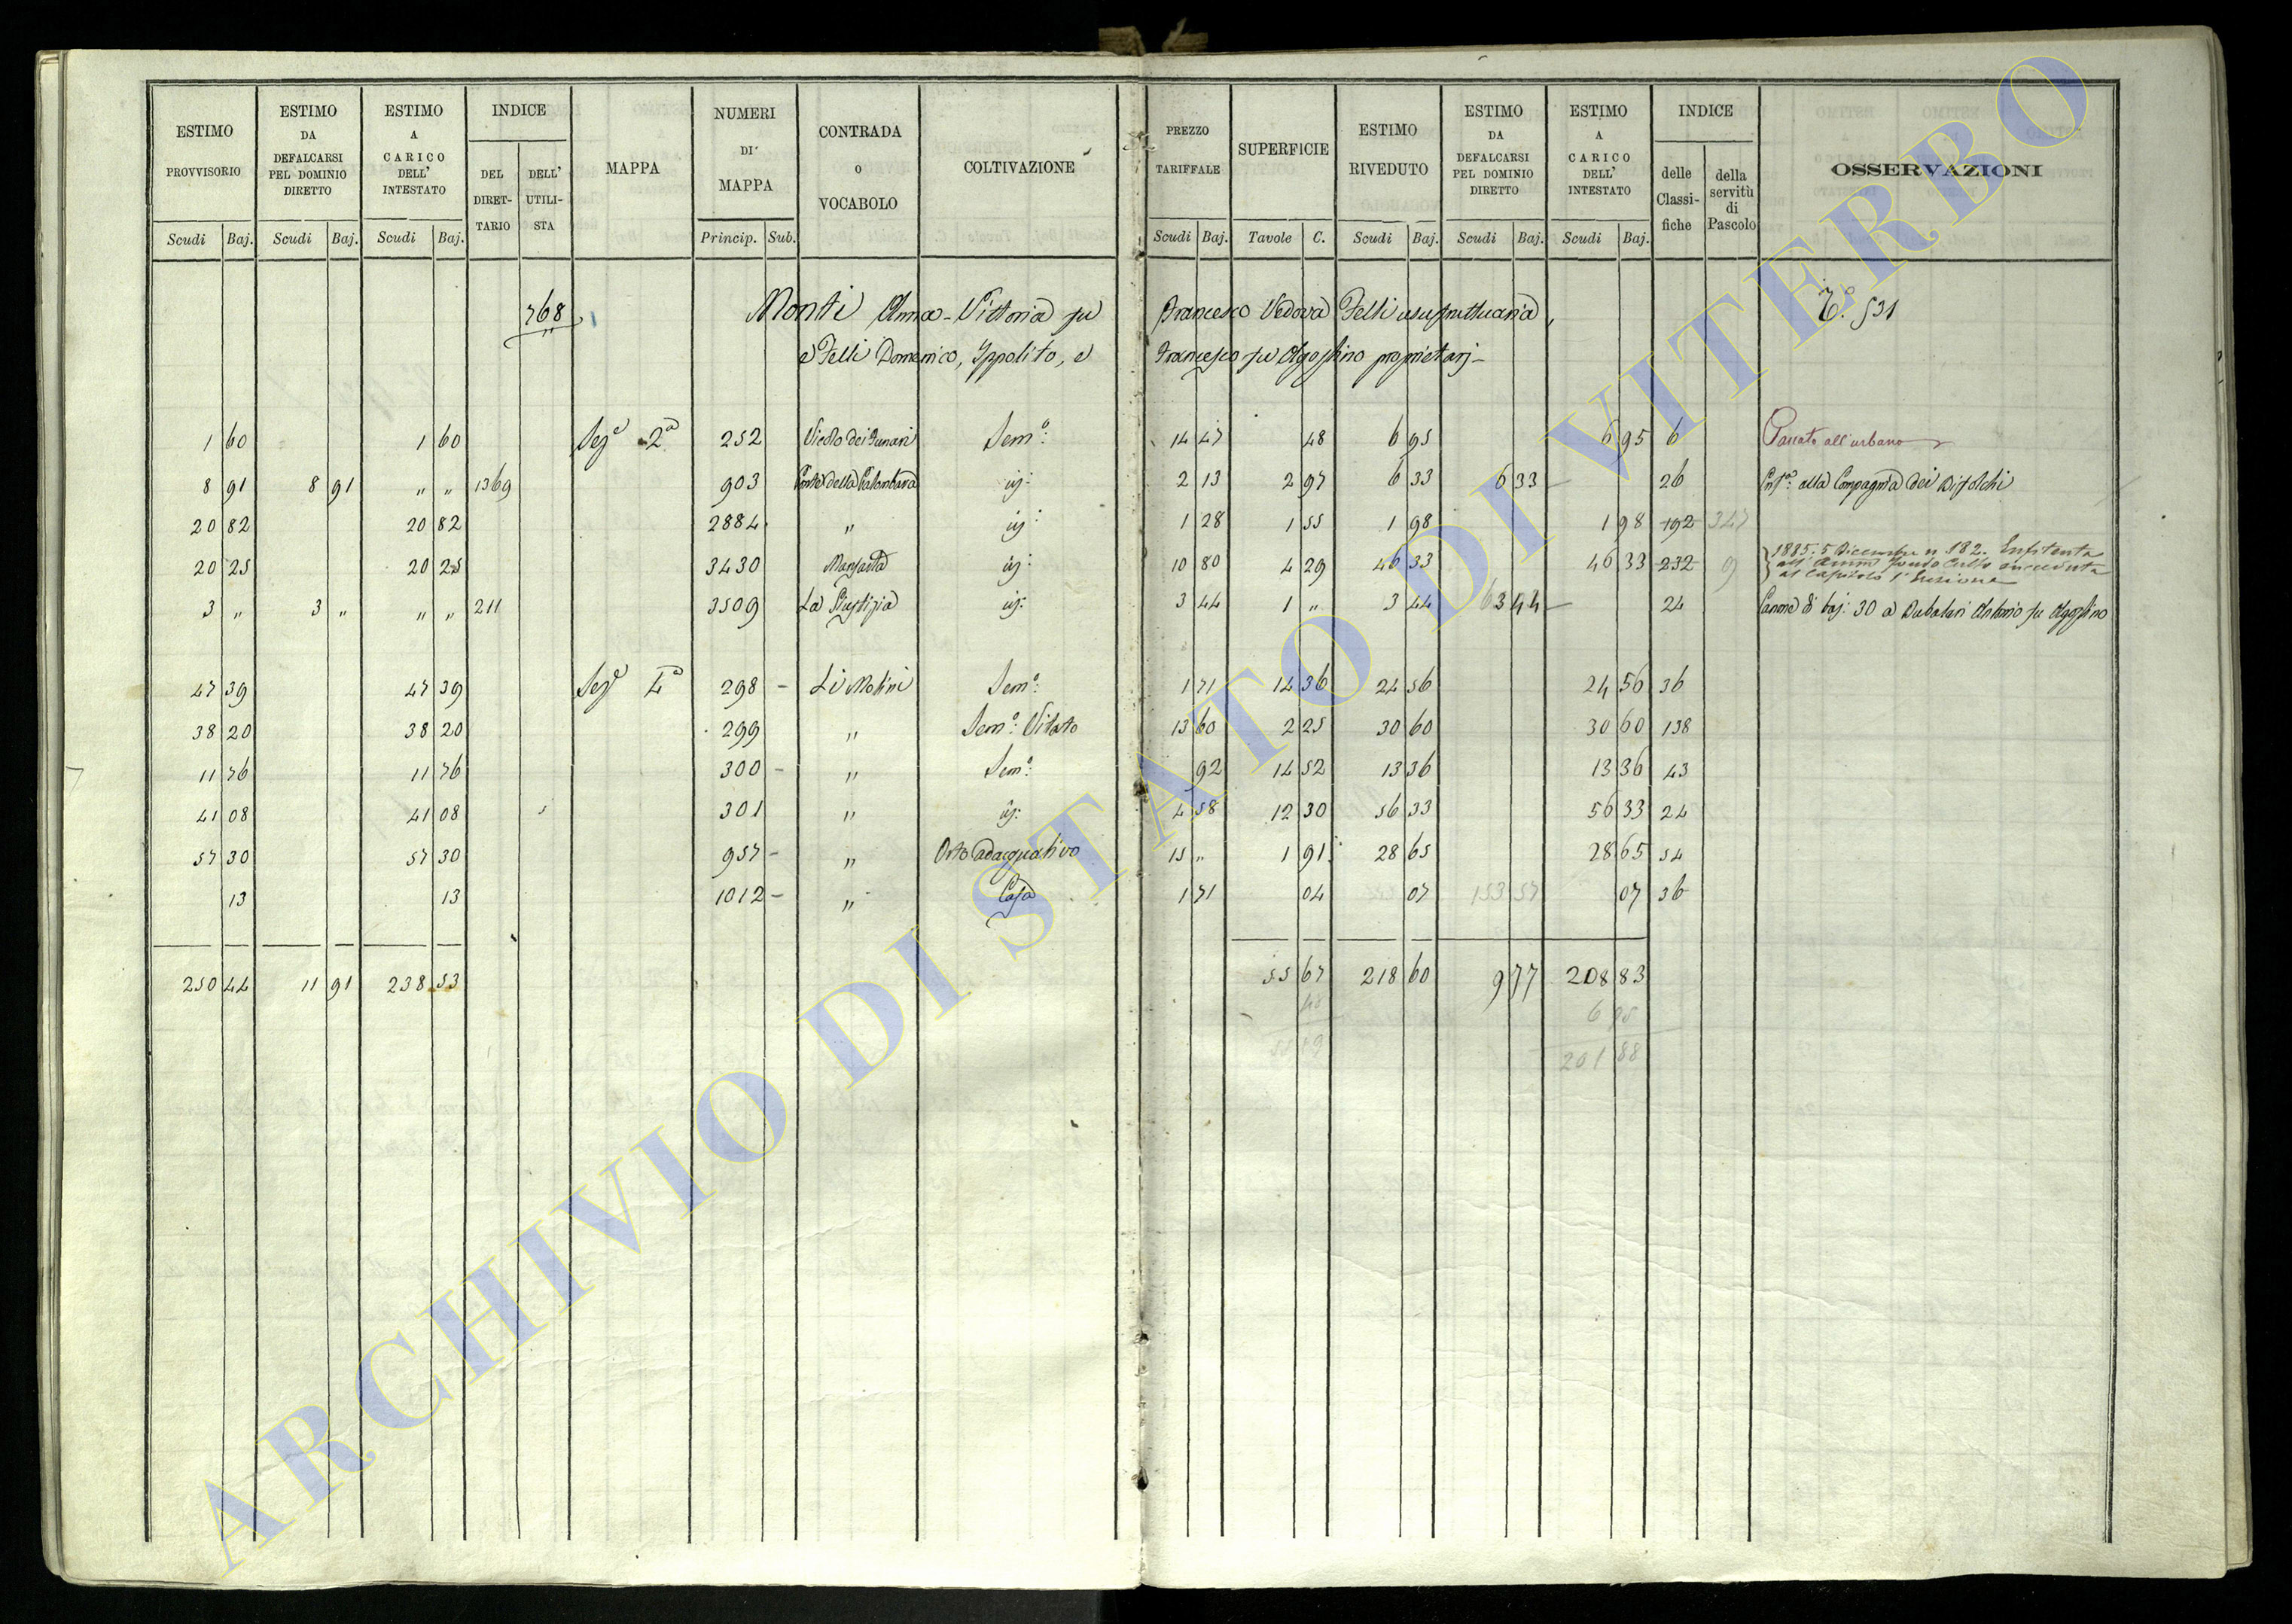 ESTIMO PROVVISORIO | ESTIMO DA DEFALCARSI PEL DOMINIO DIRETTO | ESTIMO A CARICO DELL' INTESTATO | INDICE | MAPPA | NUMERI DI MAPPA | CONTRADA O VOCABOLO | COLTIVAZIONE | PREZZO TARIFFALE | SUPERFICIE | ESTIMO RIVEDUTO | ESTIMO DA DEFALCARSI PEL DOMINIO DIRETTO | ESTIMO A CARICO DELL' INTESTATO | INDICE | OSSERVAZIONI
DEL DIRET-TARIO | DELL' UTILI-STA | delle Classi-fiche | della servitù di Pascolo
Scudi | Baj. | Scudi | Baj. | Scudi | Baj. | Princip. | Sub. | Scudi | Baj. | Tavole | C. | Scudi | Baj. | Scudi | Baj. | Scudi | Baj.
768 Monti Anna-Vittoria fu Francesco Vedova Felli usufruttuaria, T.° 531
e Felli Domenico, Ippolito, e Francesco fu Agostino proprietarj
1 60 | 1 60 | Sez.e 2a | 252 | Vicolo dei | Sem.o: | 14 47 | 48 | 6 95 | 6 95 | 6 | Passato all'urbano
8 91 | 8 91 | " " | 1369 | 903 | della | id: | 2 13 | 2 97 | 6 33 | 6 33 | 26 | alla Compagnia dei Bifolchi
20 82 | 20 82 | 2884 | " | id: | 1 28 | 1 55 | 1 98 | 1 98 | 192 | 347
20 25 | 20 25 | 3430 | id: | 10 80 | 4 29 | 46 33 | 46 33 | 232 | 9 | 1885. 5 Dicembre n. 182. Enfiteuta
all' Amm. fondo Culto succeduta
al Capitolo
3 " | 3 " | " " | 211 | 3509 | La Giustizia | id: | 3 44 | 1 " | 3 44 | 3 44 | 24 | Canone di baj: 30 a Antonio fu Agostino
47 39 | 47 39 | Sez.e 4a | 298 | Li Molini | Sem.o: | 1 71 | 14 36 | 24 56 | 24 56 | 36
38 20 | 38 20 | 299 | " | Sem.o: Vitato | 13 60 | 2 25 | 30 60 | 30 60 | 138
11 76 | 11 76 | 300 | " | Sem.o: | 92 | 14 52 | 13 36 | 13 36 | 43
41 08 | 41 08 | 301 | " | id: | 4 58 | 12 30 | 56 33 | 56 33 | 24
57 30 | 57 30 | 957 | " | Orto adacquativo | 15 " | 1 91 | 28 65 | 28 65 | 54
13 | 13 | 1012 | " | Casa | 1 71 | 04 | 07 | 153 57 | 07 | 36
250 44 | 11 91 | 238 53 | 55 67 | 218 60 | 9 77 | 208 83
48 | 6 95
55 19 | 201 88
ARCHIVIO DI STATO DI VITERBO